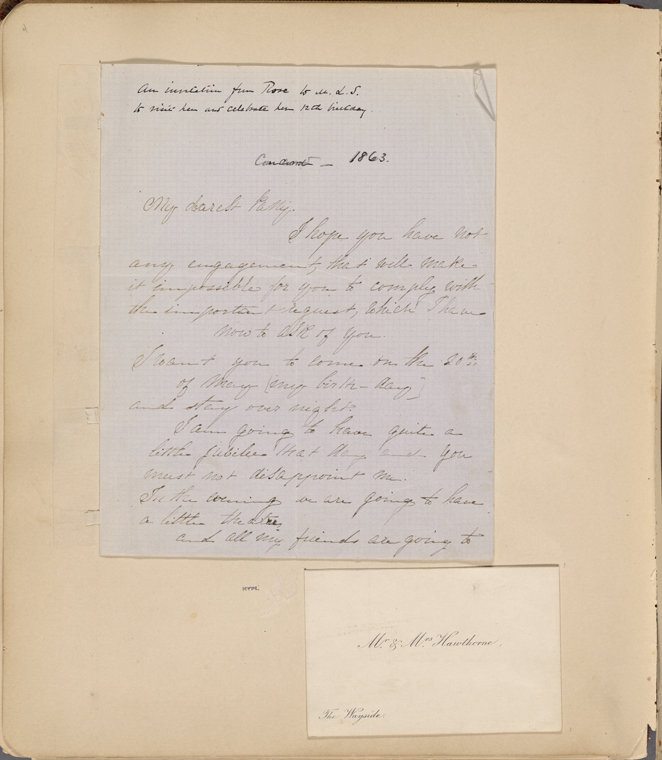 An invitation from Rose to M. L. S.
to visit her and celebrate her 12th birthday.
Concord – 1863.
My dearest
I hope you have not
any engagement, that will make
it impossible for you to comply with
the important request, which I have
now to ask of you.
I want you to come on the 20th
of May (my birth-day)
and stay over night
I am going to have quite a
little jubilee that day and you
must not disappoint me.
In the evening we are going to have
a little
and all my friends are going to
Mr. & Mrs. Hawthorne.
The Wayside.